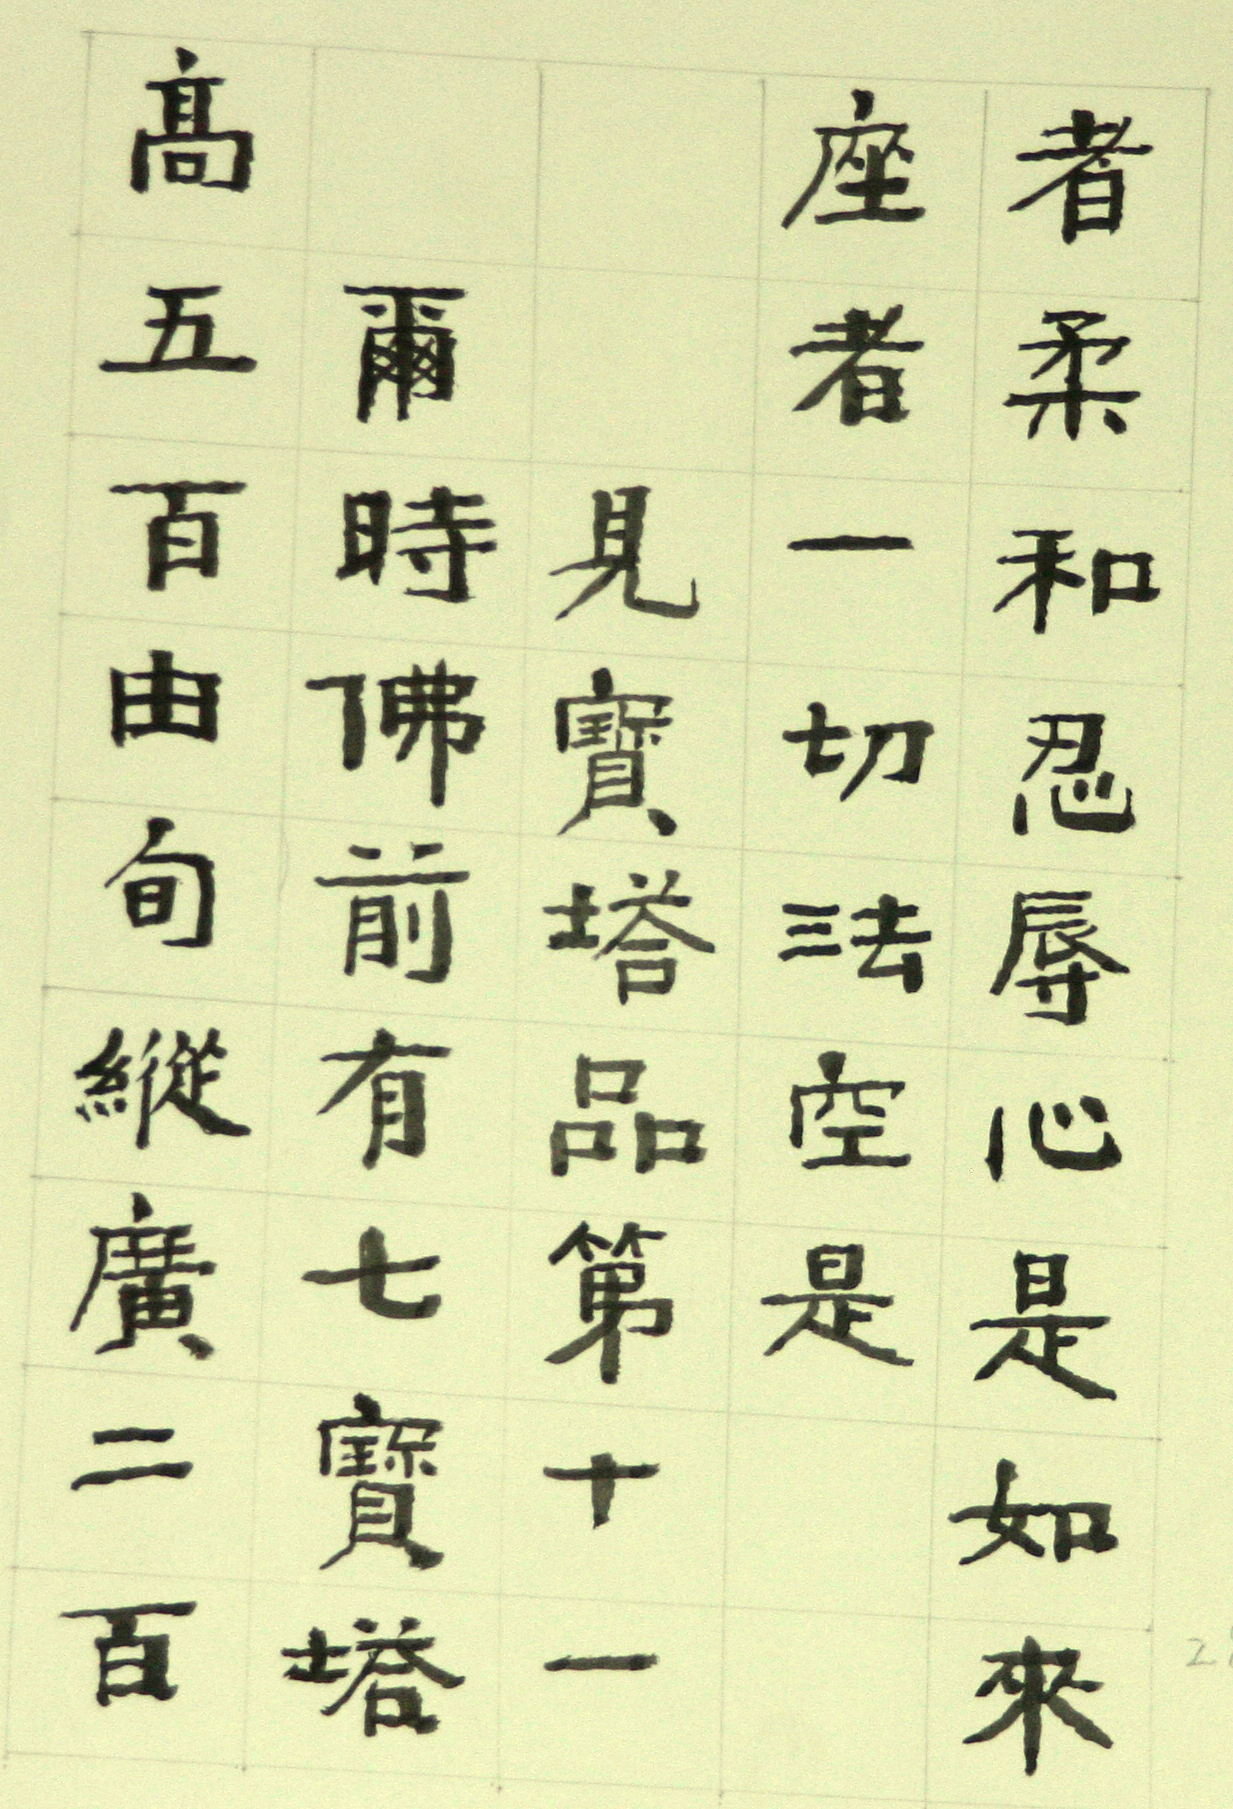 者柔和忍辱心是如來
座者一切法空是
見寶塔品第十一
爾時佛前有七寶塔
高五百由旬縱廣二百